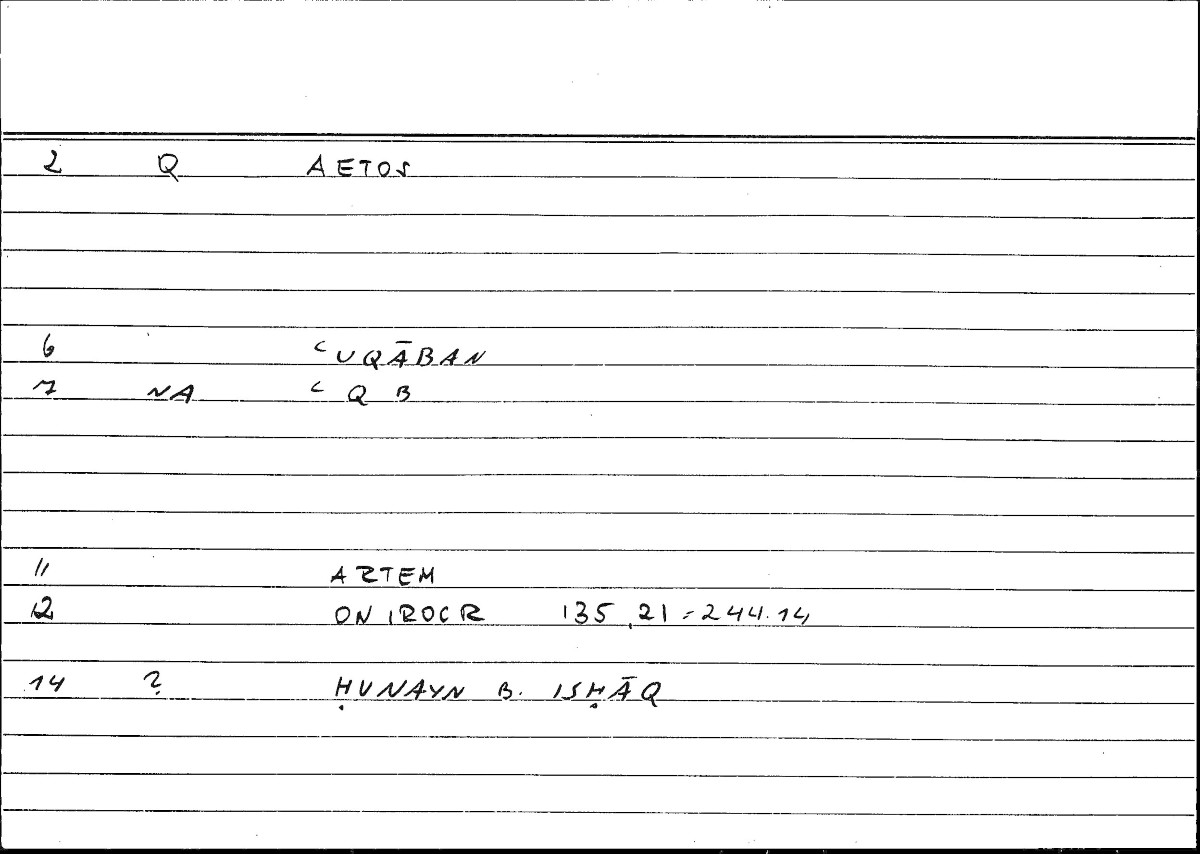 2 Q AETOS
6 ʿUQĀBAN
7 NA ʿ Q B
11 ARTEM
12 ONIROCR 135,21 = 244.14
14 ? ḤUNAYN B. ISḤĀQ